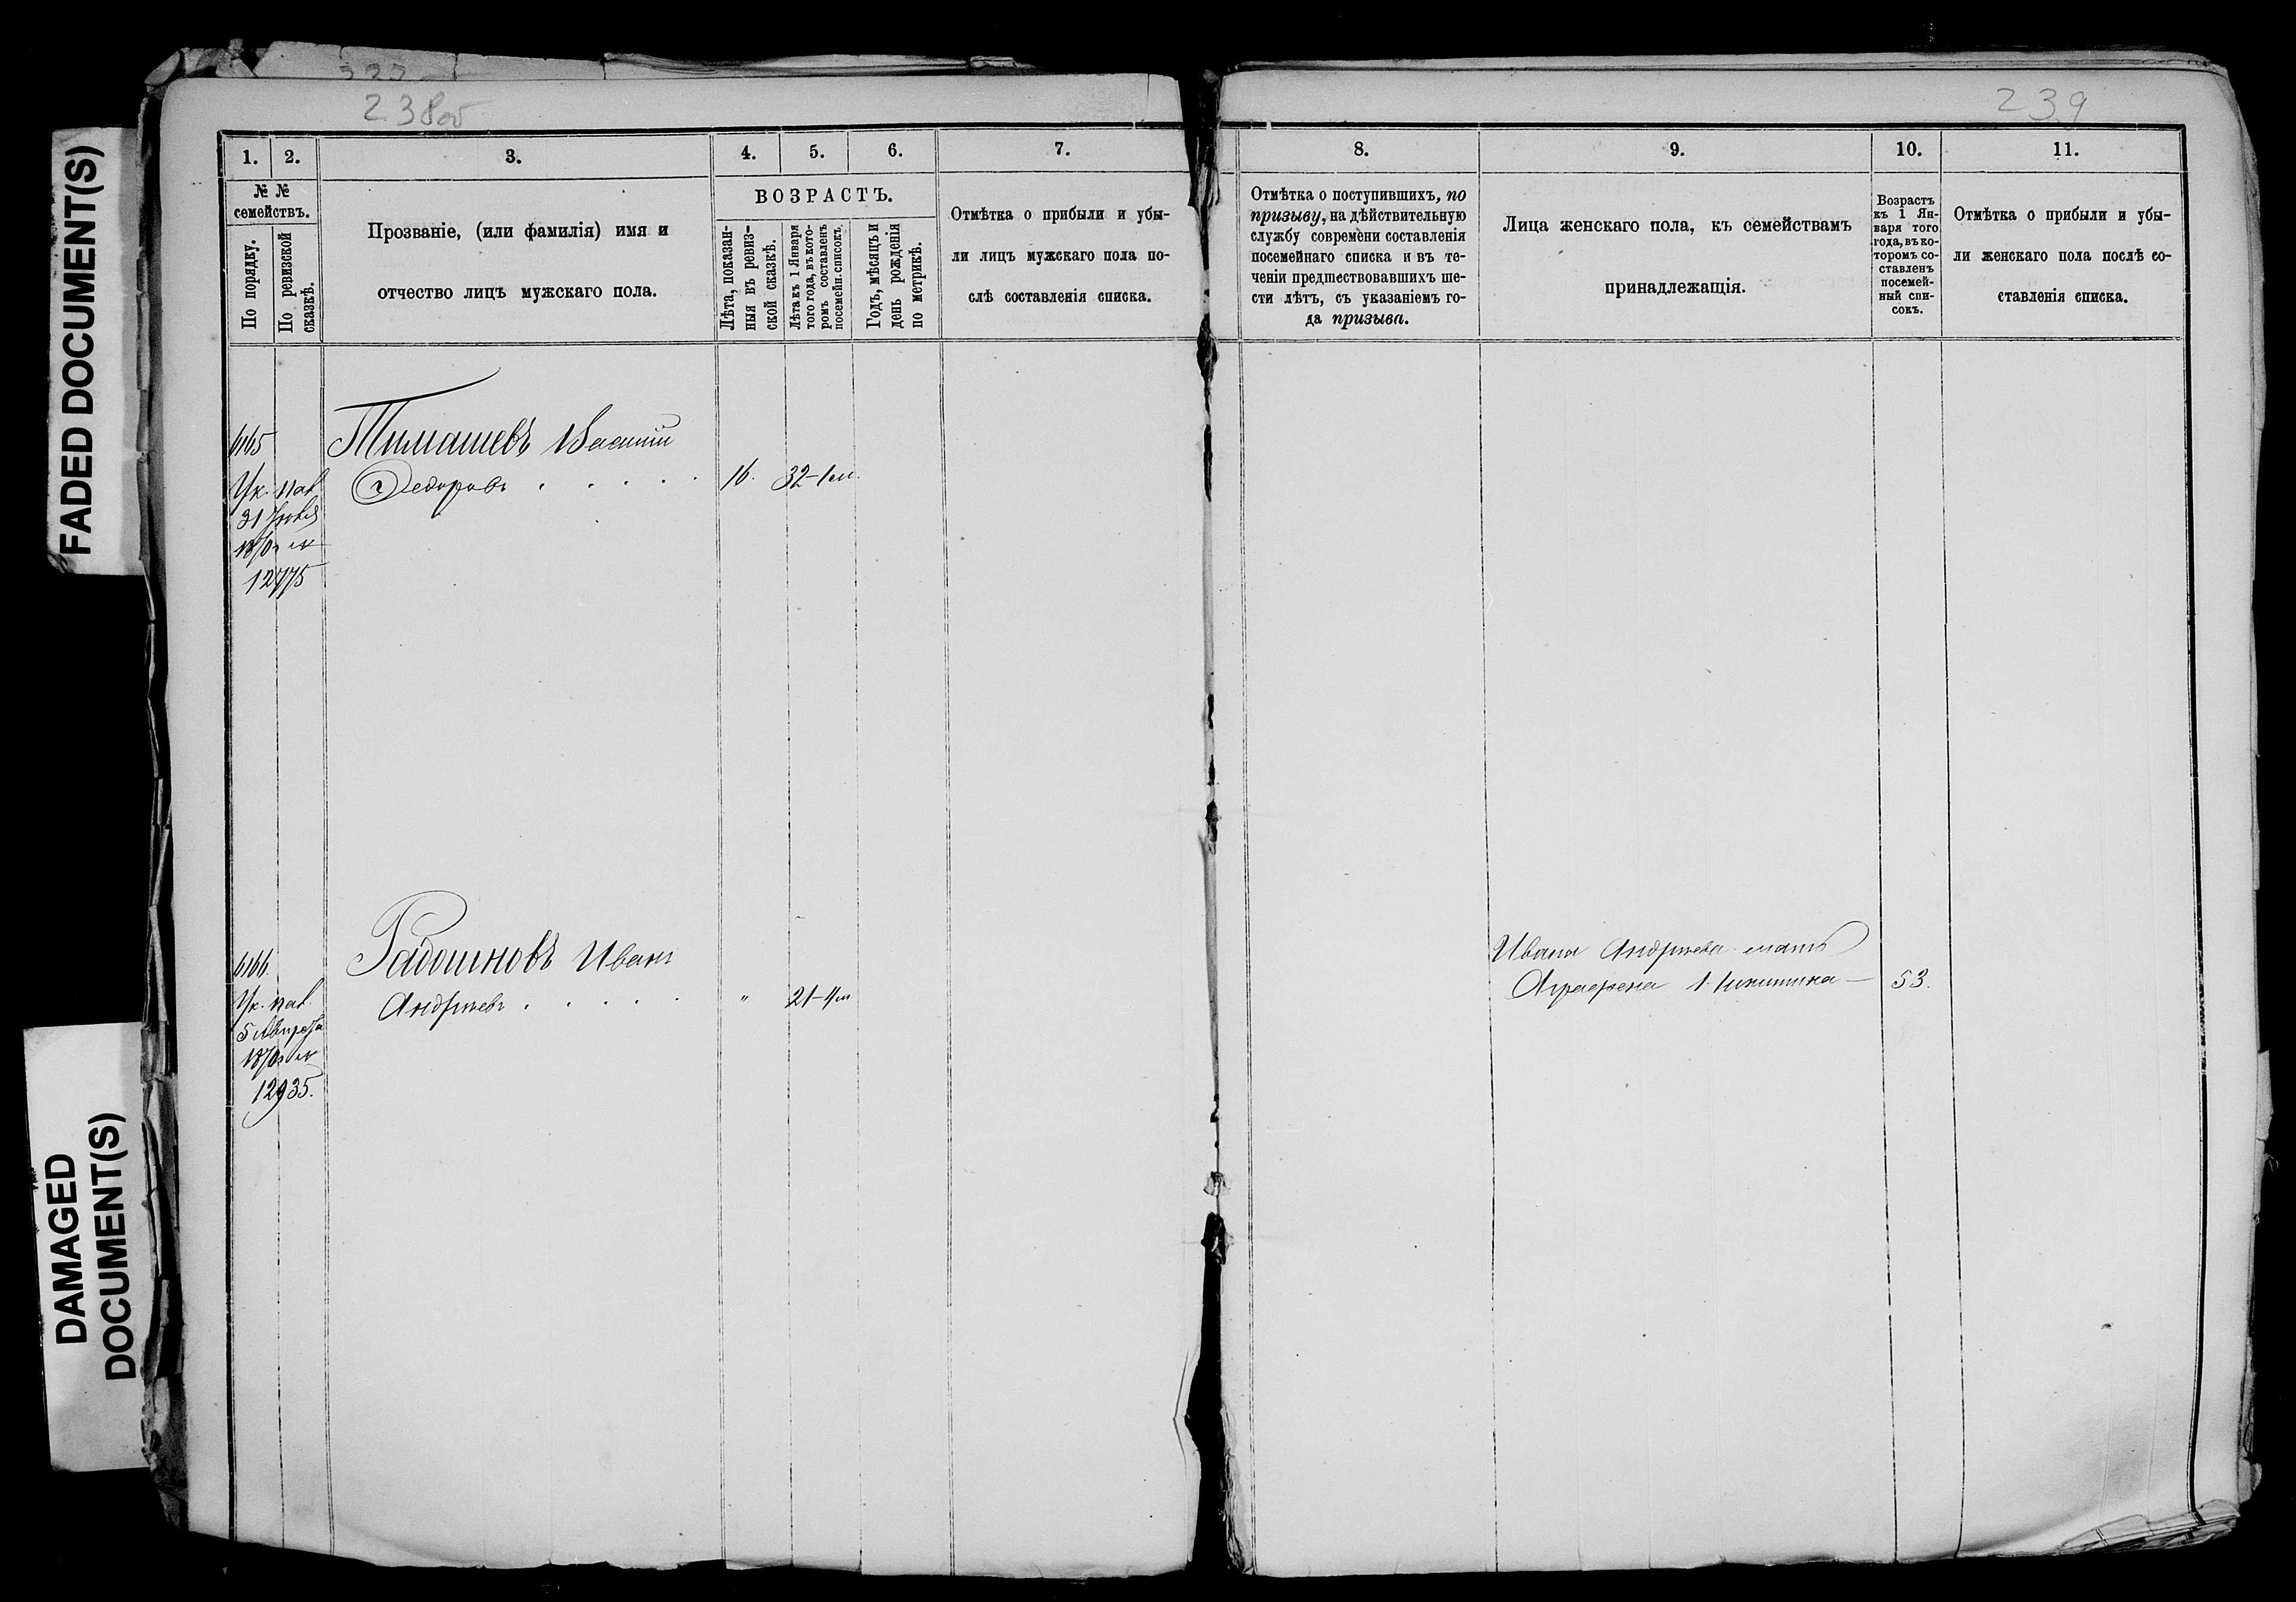 FADED DOCUMENT(S)
DAMAGED
DOCUMENT(S)
238об
239
1. 2. 3. 4. 5. 6. 7. 8. 9. 10. 11.
№ №
семействъ.
По порядку.
По ревизской
сказкѣ.
Прозваніе, (или фамилія) имя и
отчество лицъ мужскаго пола.
ВОЗРАСТЪ.
Лѣта, показан-
ныя въ ревиз-
ской сказкѣ.
Лѣта къ 1 Января
того года, въ кото-
ромъ составленъ
посемейн. списокъ.
Годъ, мѣсяцъ и
день рожденія
по метрикѣ.
Отмѣтка о прибыли и убы-
ли лицъ мужскаго пола по-
слѣ составленія списка.
Отмѣтка о поступившихъ, по
призыву, на дѣйствительную
службу современи составленія
посемейнаго списка и въ те-
ченіи предшествовавшихъ ше-
сти лѣтъ, съ указаніемъ го-
да призыва.
Лица женскаго пола, къ семействамъ
принадлежащія.
Возрастъ
къ 1 Ян-
варя того
года, въ ко-
торомъ со-
ставленъ
посемей-
ный спи-
сокъ.
Отмѣтка о прибыли и убы-
ли женскаго пола послѣ со-
ставленія списка.
6165 Тимашевъ Василій
Ук. пал. Федоровъ . . . . . 16. 32-1м.
31 Іюля
1870 г. №
12775
6166. Радошновъ Иванъ
Ук. пал. Андреевъ . . . . . " 21-4м
5 Августа
1870 г. №
12935.
Ивана Андреева мать
Аграфена Никитина — 53.